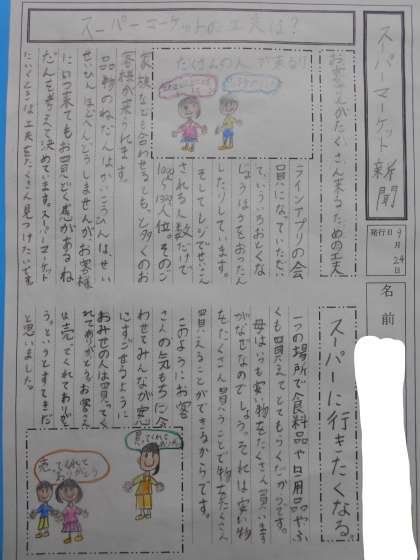 スーパーマーケット新聞
発行日9月24日
名前
スーパーマーケットの工夫は?
お客さんがたくさん来るための工夫
ラインアプリの会
員になっていただい
ていろいろおとくな
じょうほうをおったえ
したりしています。
そしてレジでせいさん
される人数だけで
人位。そのご
家族なども合わせると、もっと多くのお
客様が来られます。
品物のねだんはかいこうひんは、せい
せいひんほどへんどうしませんが、お客様
にいつ来てもお買いどく感があるね
だんを考えて決めています。スーパーマーケット
たいてんは工夫をたくさん見つけたいです
たくさんの人が来る!!
スーパーに行きたくなる。
一つの場所で食料品や日用品やふ
くも買えてとてもらくだからです。
母はいつも安い物をたくさん買います
がなぜなのでしょう。それは安い物
をたくさん買うことで物をたくさん
買えることができるからです。
このようにお客
さんの気もちに合
わせてみんなが楽
にすごせるように
おみせの人は買ってく
れてありがとう。お客さん
は売ってくれてありがと
う。というとすてきだ
と思いました。
買ってくれて
ありがとう
売ってくれて
ありがとう